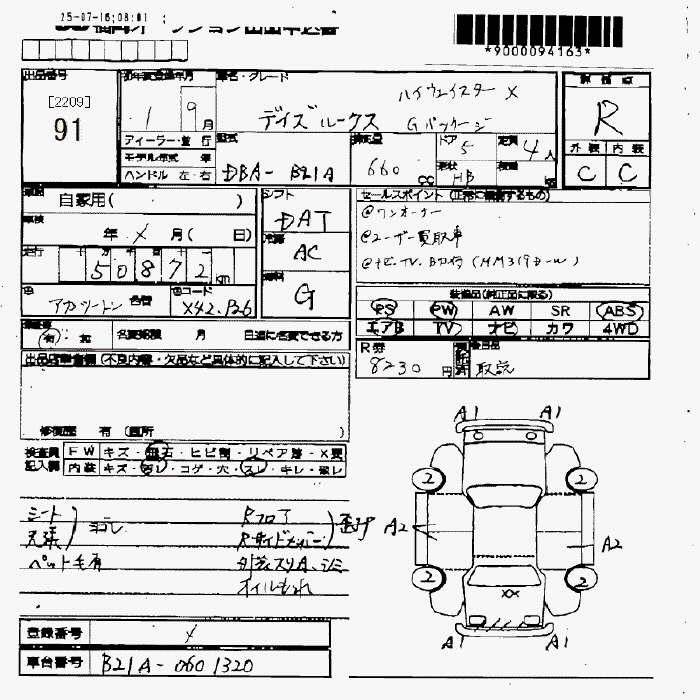 25-07-16;08:01
*9000094163*
出品番号
[2209]
91
初年度登録年月 車名・グレード
1 9月
ハイウェイスター X
デイズルークス Gパッケージ
R
ディーラー・並行
モデル年式 年
ハンドル 左・右
型式
DBA- B21A
排気量
660 cc
ドア
5
形状
HB
定員
4人
積載
kg
外装 内装
C C
自家用( )
車検
年 X 月( 日)
走行
50872 km
色
アカツートン 色替
色コード
X42.P26
シフト
DAT
冷房
AC
燃料
G
セールスポイント (正常に機能するもの)
@ワンオーナー
@ユーザー買取車
@ナビ.TV.B付 (MM319D-W)
装備品(純正品に限る)
PS PW AW SR ABS
エアB TV ナビ カワ 4WD
有・無 名変期限 月 日迄に名変できる方
R券
8230円
後日品
取説
出品店申告欄 (不良内容・欠品など具体的に記入して下さい)
修復歴 有 (箇所 )
検査員記入欄
FW キズ・飛石・ヒビ割・リペア跡・X要
内装 キズ・ヨゴレ・コゲ・穴・スレ・キレ・破レ
シート
天張
ヨゴレ
ペット毛有
Rフロア
Rサイドメンバー
オイルもれ
A1 A1
2 2
A2 A2
2 2
XX
A1 A1
登録番号 X
車台番号 B21A-0601320